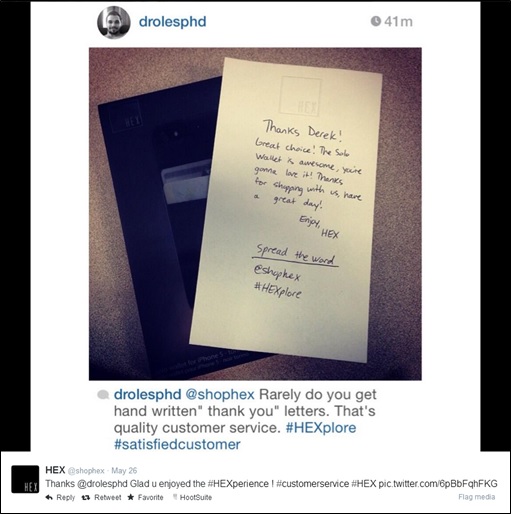 drolesphd
41m
HEX
HEX
Thanks Derek!
Great choice! The Solo
Wallet is awesome, you're
gonna love it! Thanks
for shopping with us, have
a great day!
Enjoy,
HEX
Spread the word
@shophex
#HEXplore
wallet for iPhone 5
drolesphd @shophex Rarely do you get
hand written" thank you" letters. That's
quality customer service. #HEXplore
#satisfiedcustomer
HEX @shophex · May 26
Thanks @drolesphd Glad u enjoyed the #HEXperience ! #customerservice #HEX pic.twitter.com/6pBbFqhFKG
Reply Retweet Favorite HootSuite Flag media